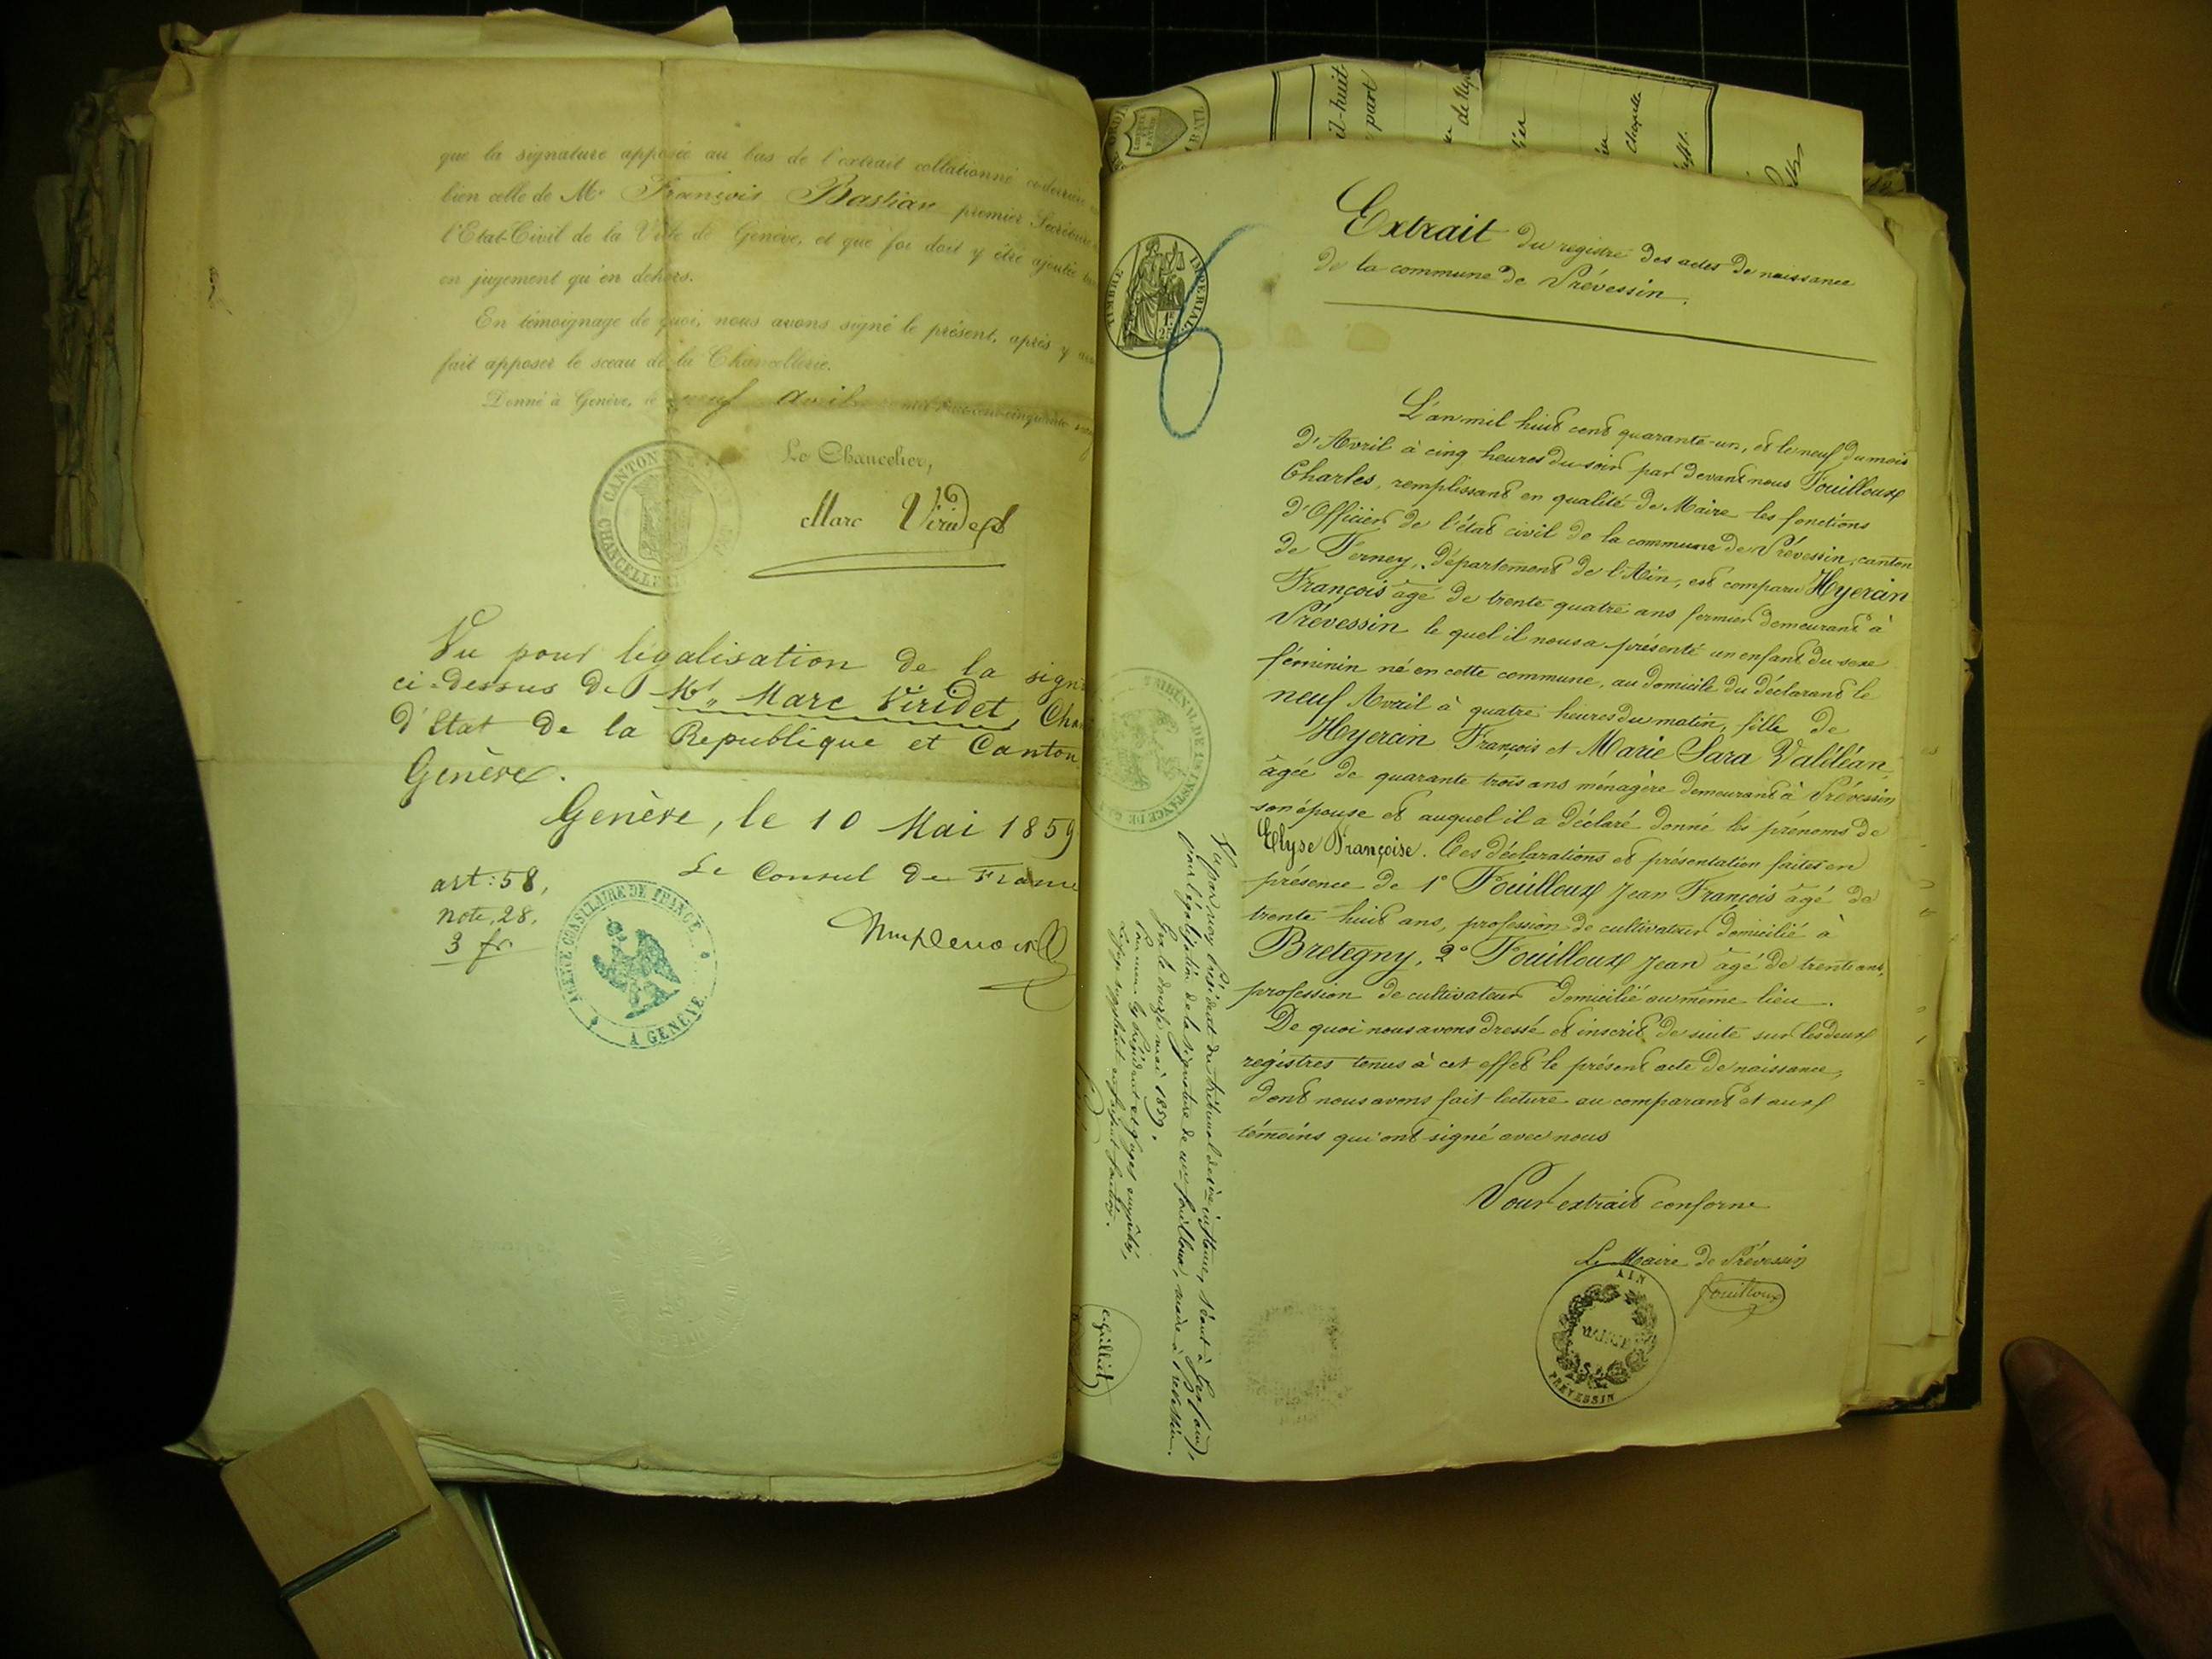 que la signature apposée au bas de l'extrait collationné ci-derrière
bien celle de Mr François Bastian premier Secrétaire
l'Etat-Civil de la Ville de Genève, et que foi doit y être ajoutée
en jugement qu'en dehors.
En témoignage de quoi, nous avons signé le présent, après y
fait apposer le sceau de la Chancellerie.
Donné à Genève, le neuf avril mil huit cent cinquante
Le Chancelier,
Marc Viridet
CANTON
CHANCELLERIE
Vu pour légalisation de la sign
ci-dessus de Mr Marc Viridet, Chan
d'Etat de la République et Canton
Genève.
Genève, le 10 Mai 1859
Le Consul de France
art: 58,
note, 28.
3 fr
AGENCE CONSULAIRE DE FRANCE
A GENEVE
il-huit
part
Chapelle
TIMBRE IMPERIAL
1F
25
Extrait du registre des actes de naissance
de la commune de Prévessin.
L'an mil huit cent quarante-un, et le neuf du mois
d'Avril à cinq heures du soir par devant nous Fouilloux
Charles, remplissant en qualité de Maire les fonctions
d'Officier de l'état civil de la commune de Prévessin, canton
de Ferney, département de l'Ain, est comparu Hyerain
François âgé de trente quatre ans fermier demeurant à
Prévessin le quel il nous a présenté un enfant du sexe
féminin né en cette commune, au domicile du déclarant le
neuf Avril à quatre heures du matin, fille de
Hyerain François et Marie Sara Valéléan
âgée de quarante trois ans ménagère demeurant à Prévessin
son épouse et auquel il a déclaré donné les prénoms de
Elyse Françoise. Ces déclarations et présentation faites en
présence de 1° Fouilloux Jean François âgé de
trente huit ans, profession de cultivateur domicilié à
Bretegny, 2° Fouilloux Jean âgé de trente ans,
profession de cultivateur domicilié au même lieu.
De quoi nous avons dressé et inscrit de suite sur les deux
registres tenus à cet effet le présent acte de naissance,
dont nous avons fait lecture au comparant et aux
témoins qui ont signé avec nous
Pour extrait conforme
Le Maire de Prévessin
Fouilloux
AIN
PREVESSIN
TRIBUNAL DE 1RE INSTANCE DE GEX
Vu par nous Président du tribunal de 1ère instance, séant à Gex (ain),
pour légalisation de la signature de mr fouilloux, maire à Prévessin.
Gex le douze mai 1859.
Pour mr le Président et Juges empêchés,
Le Juge suppléant